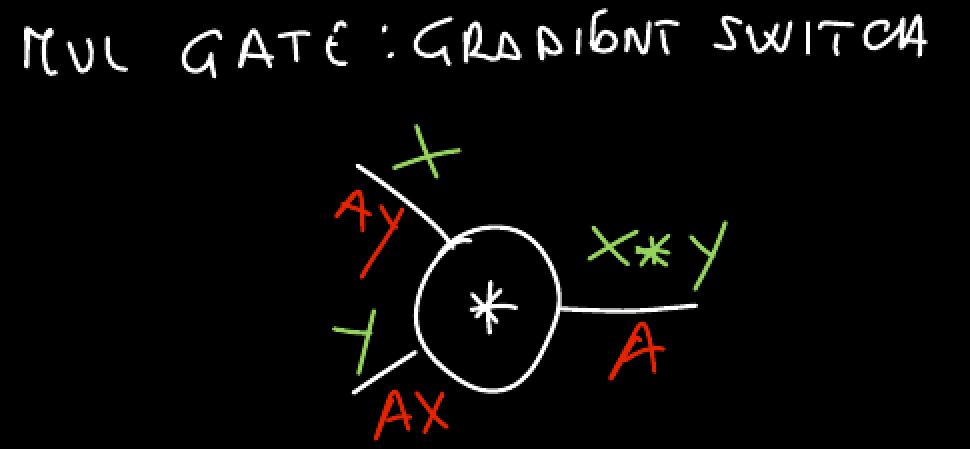 MUL GATE: GRADIENT SWITCH
X
AY
X*Y
*
Y
A
AX